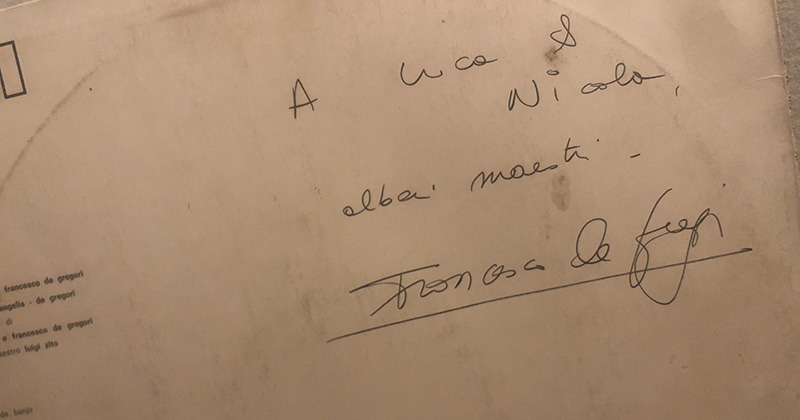 A Luca &
Nicola,
albai maestri -
Francesco de Gregori
francesco de gregori
angelis - de gregori
di
e francesco de gregori
maestro luigi zito
de, banjo